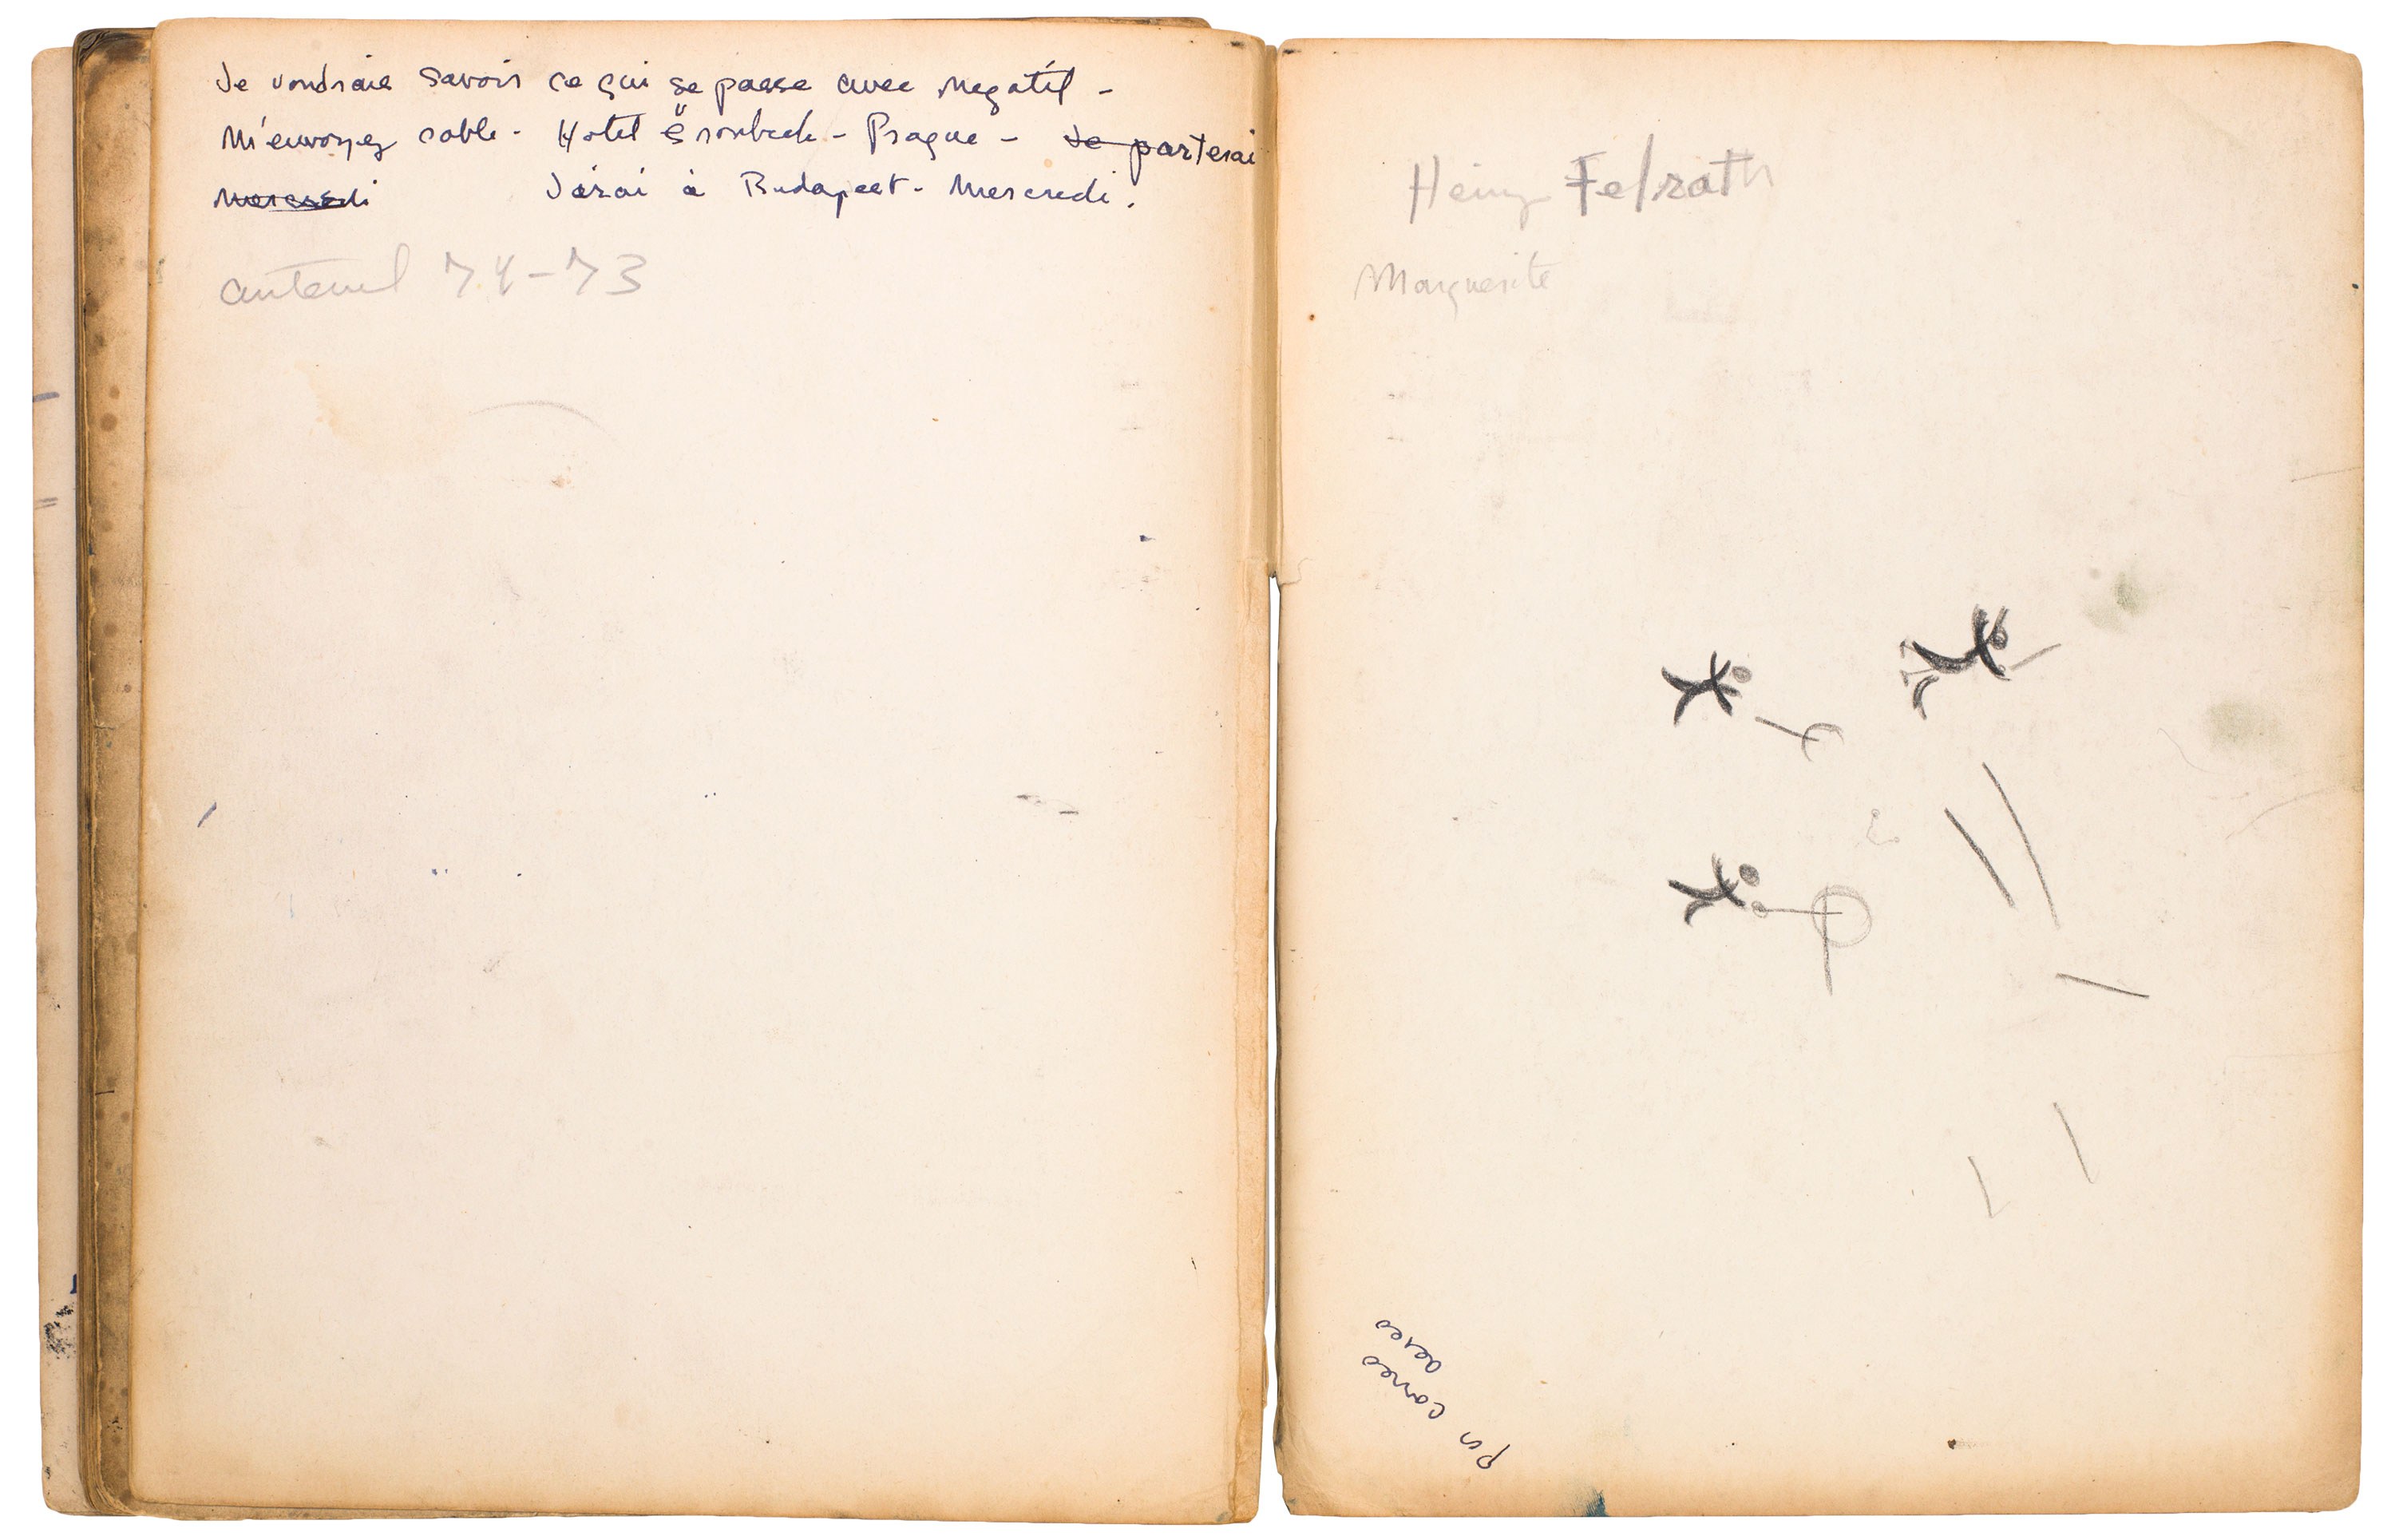 Je voudrais savoir ce qui se passe avec negatif -
M'envoyez cable - Hotel - Prague - Je parterai
Mercredi J'irai à Budapest - Mercredi.
auteuil 74-73
Heinz Felrath
Marguerite
Por correo
aereo